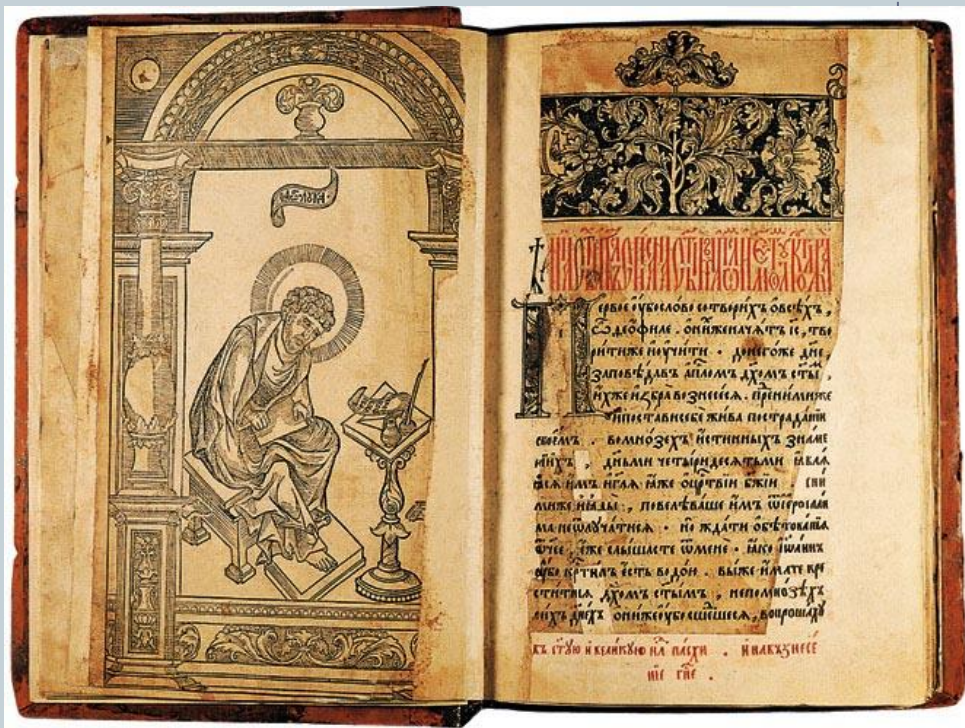 лука
Первое ѹ҆бо слово сотворихъ ѡ всѣхъ,
ѽ ѳеофиле. ѡ ни́хже начатъ і҃с, тво
рити же и҆ ѹ҆чи́ти · донегоже дн҃е,
заповѣдавъ а҆п҃ломъ дх҃омъ ст҃ы,
и҆́хже и҆збра вознесе́сѧ. пре ни́миже
и҆ постави себе жи́ва по страда́нїи
своемъ. во мно́зехъ и҆́стинныхъ зна́ме
нїихъ, дньми четы́ридесѧтьми ꙗ҆влѧ
ꙗсѧ и҆̀мъ и҆ гл҃ѧ ꙗ҆́же ѡ цр҃твїи бж҃їи. с ни
миже и҆ ꙗ҆ды, повелѣваше и҆̀мъ ѿ і҆еросали
ма не ѿлуча́тисѧ · но жда́ти ѡ҆бѣтова́нїѧ
ѿч҃ее, є҆́же слышасте ѿ мене · ꙗ҆́ко і҆ѡа́ннъ
ѹ҆́бо кр҃тилъ є҆сть водо́ю. вы́ же и҆́мате кре
стити́сѧ дх҃омъ ст҃ымъ, не по мно́зѣхъ
си́хъ дне́хъ ѡ҆ни́же ѹ҆бо сше́дшесѧ, вопроша́хѹ
въ ст҃ѹю и҆ вели́кѹю нл҃ пасхи. и҆ на възнесе́
нїе гн҃е.